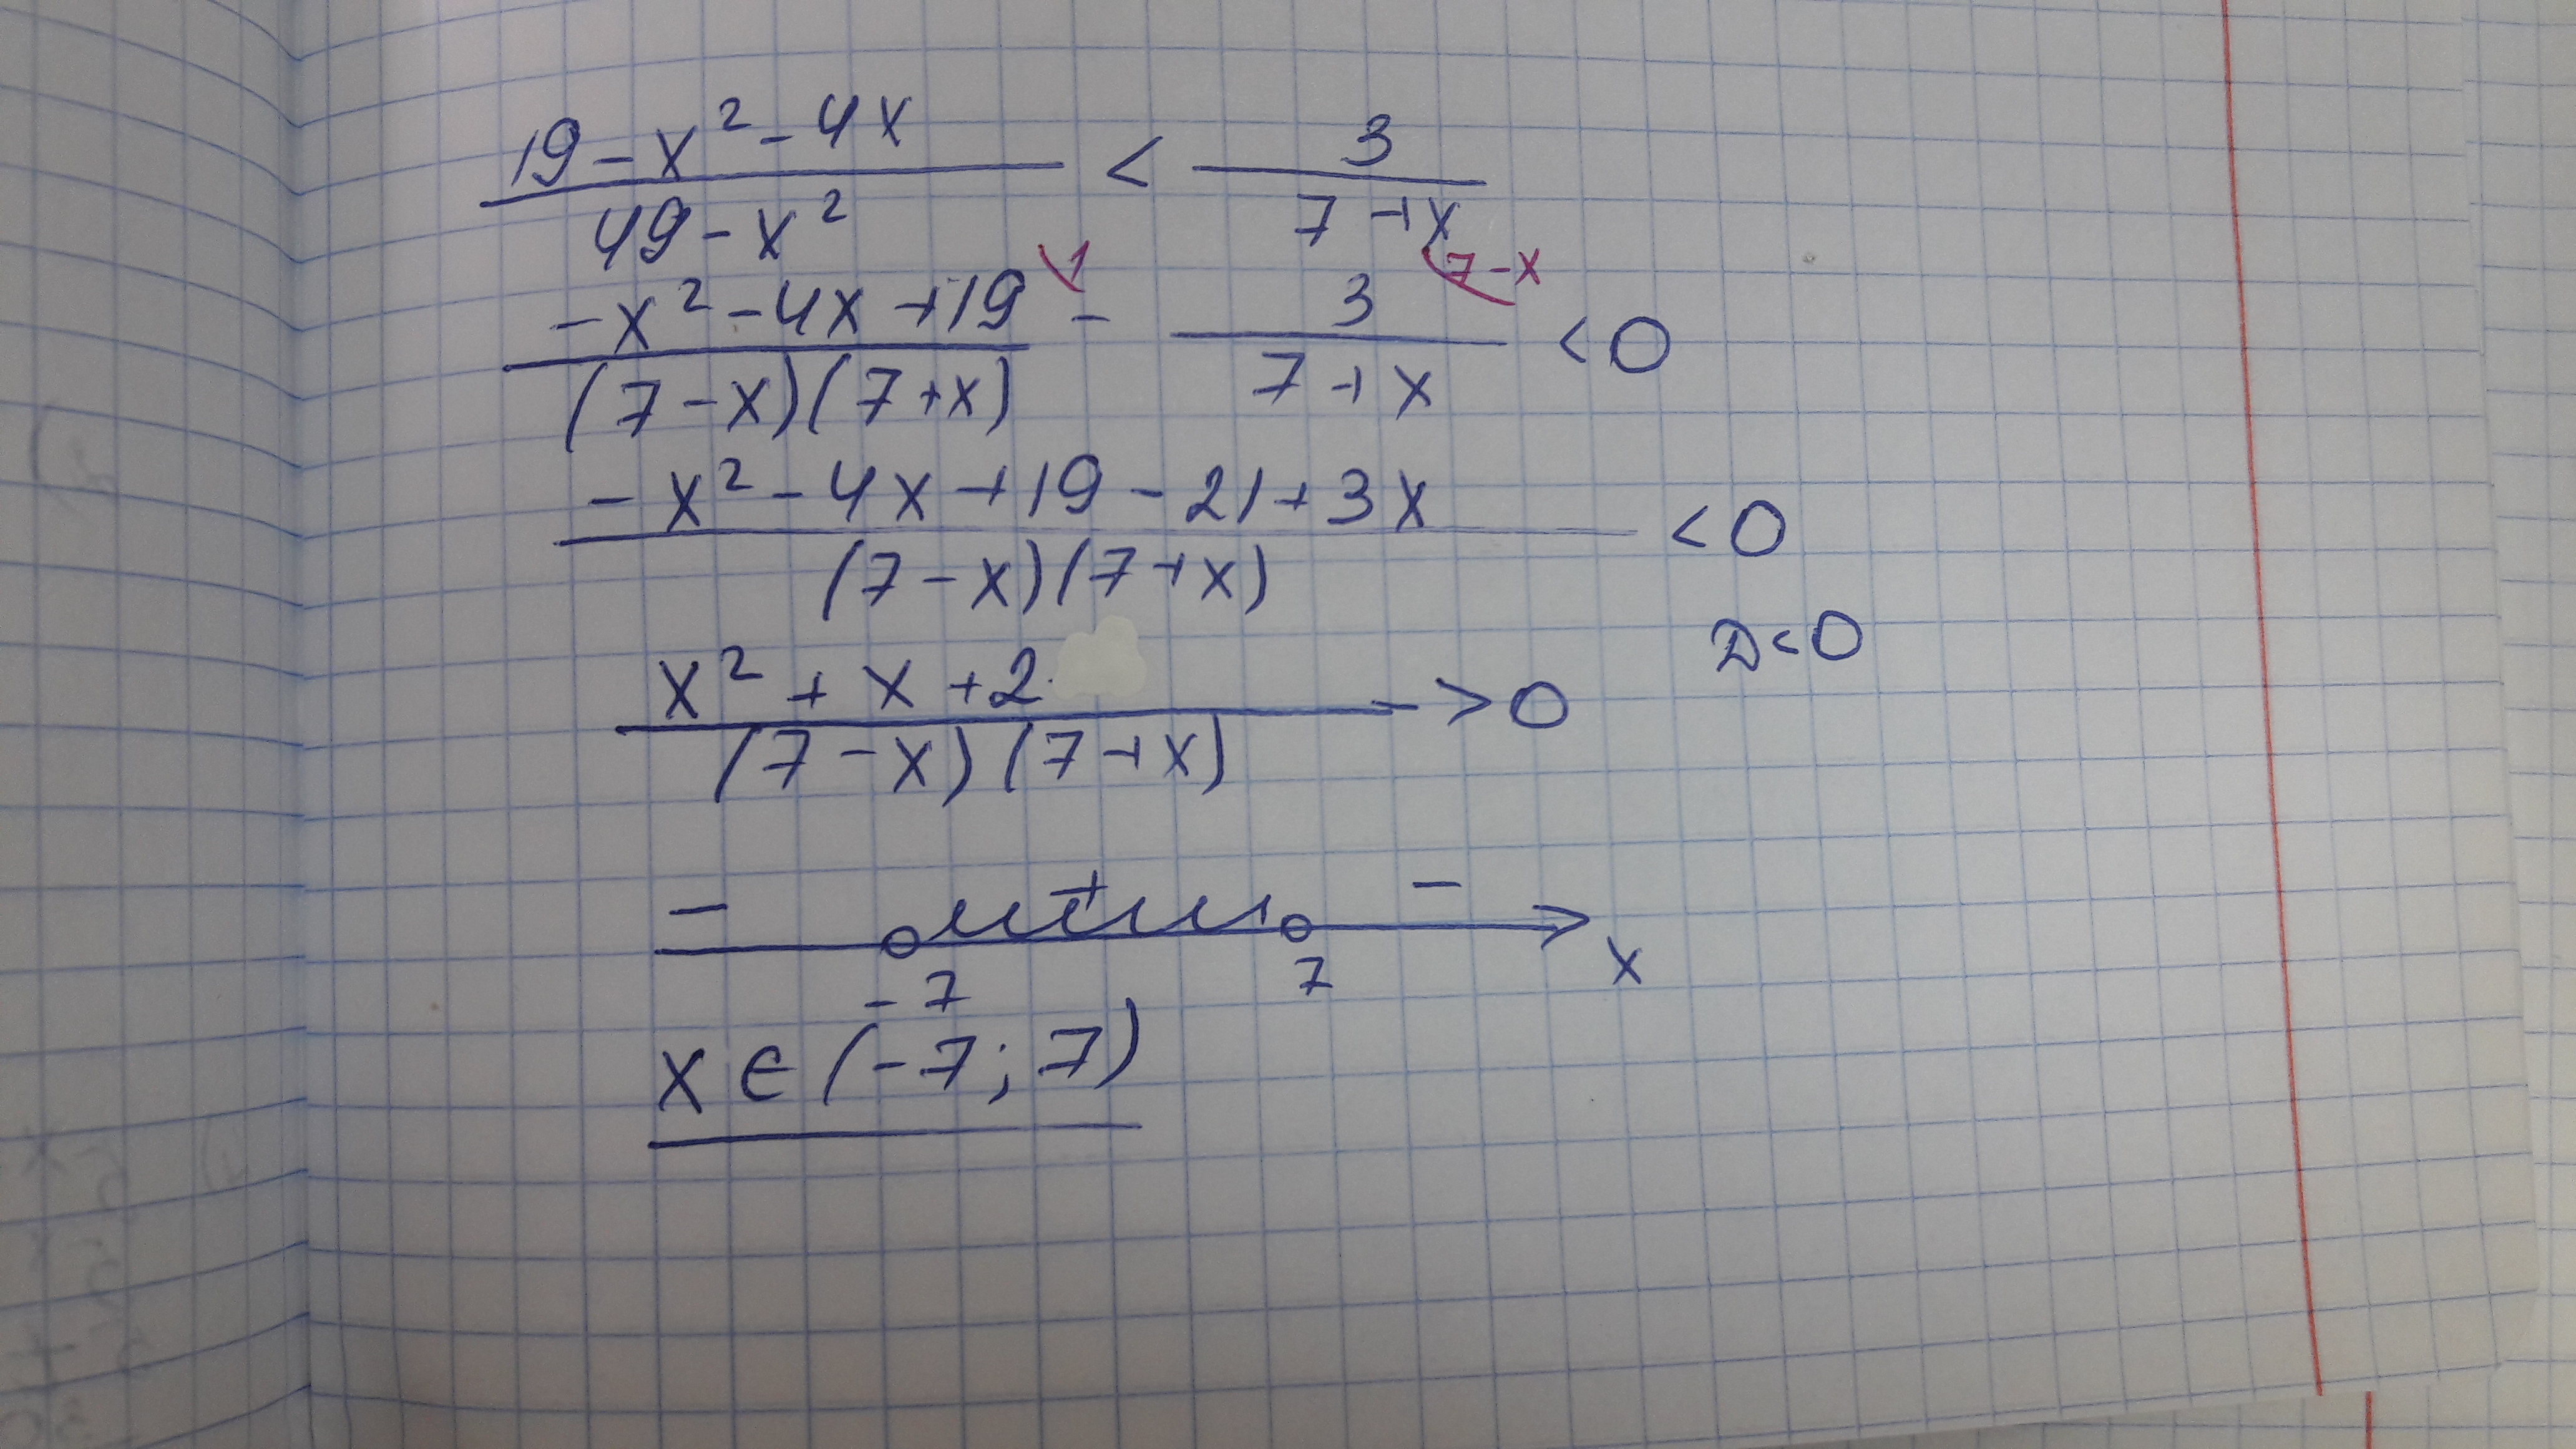 19 - x² - 4x / 49 - x² < 3 / 7 + x
-x² - 4x + 19 / (7 - x)(7 + x) - 3 / 7 + x < 0
1
7 - x
-x² - 4x + 19 - 21 + 3x / (7 - x)(7 + x) < 0
D < 0
x² + x + 2 / (7 - x)(7 + x) > 0
- + -
-7 7 x
x ∈ (-7; 7)